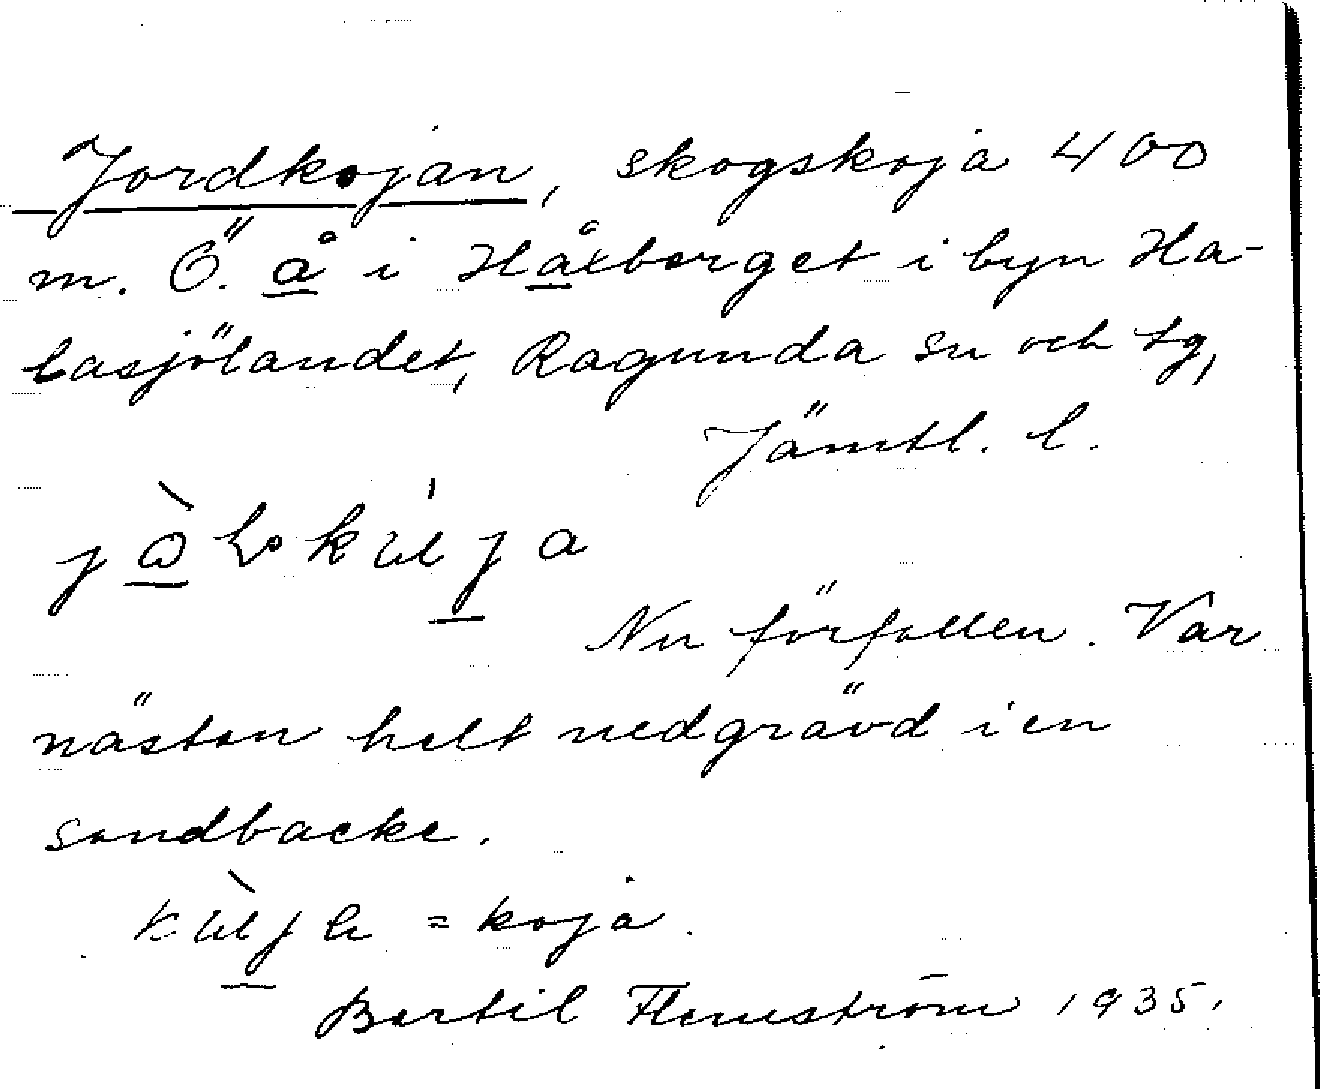 Jordkojan, skogskoja 400
m. Ö. å i Håxberget i byn Ha-
basjölandet, Ragunda sn och tg,
Jämtl. l.
Nu förfallen. Var
nästan helt nedgrävd i en
sandbacke.
= koja.
Bertil Flemström 1935.